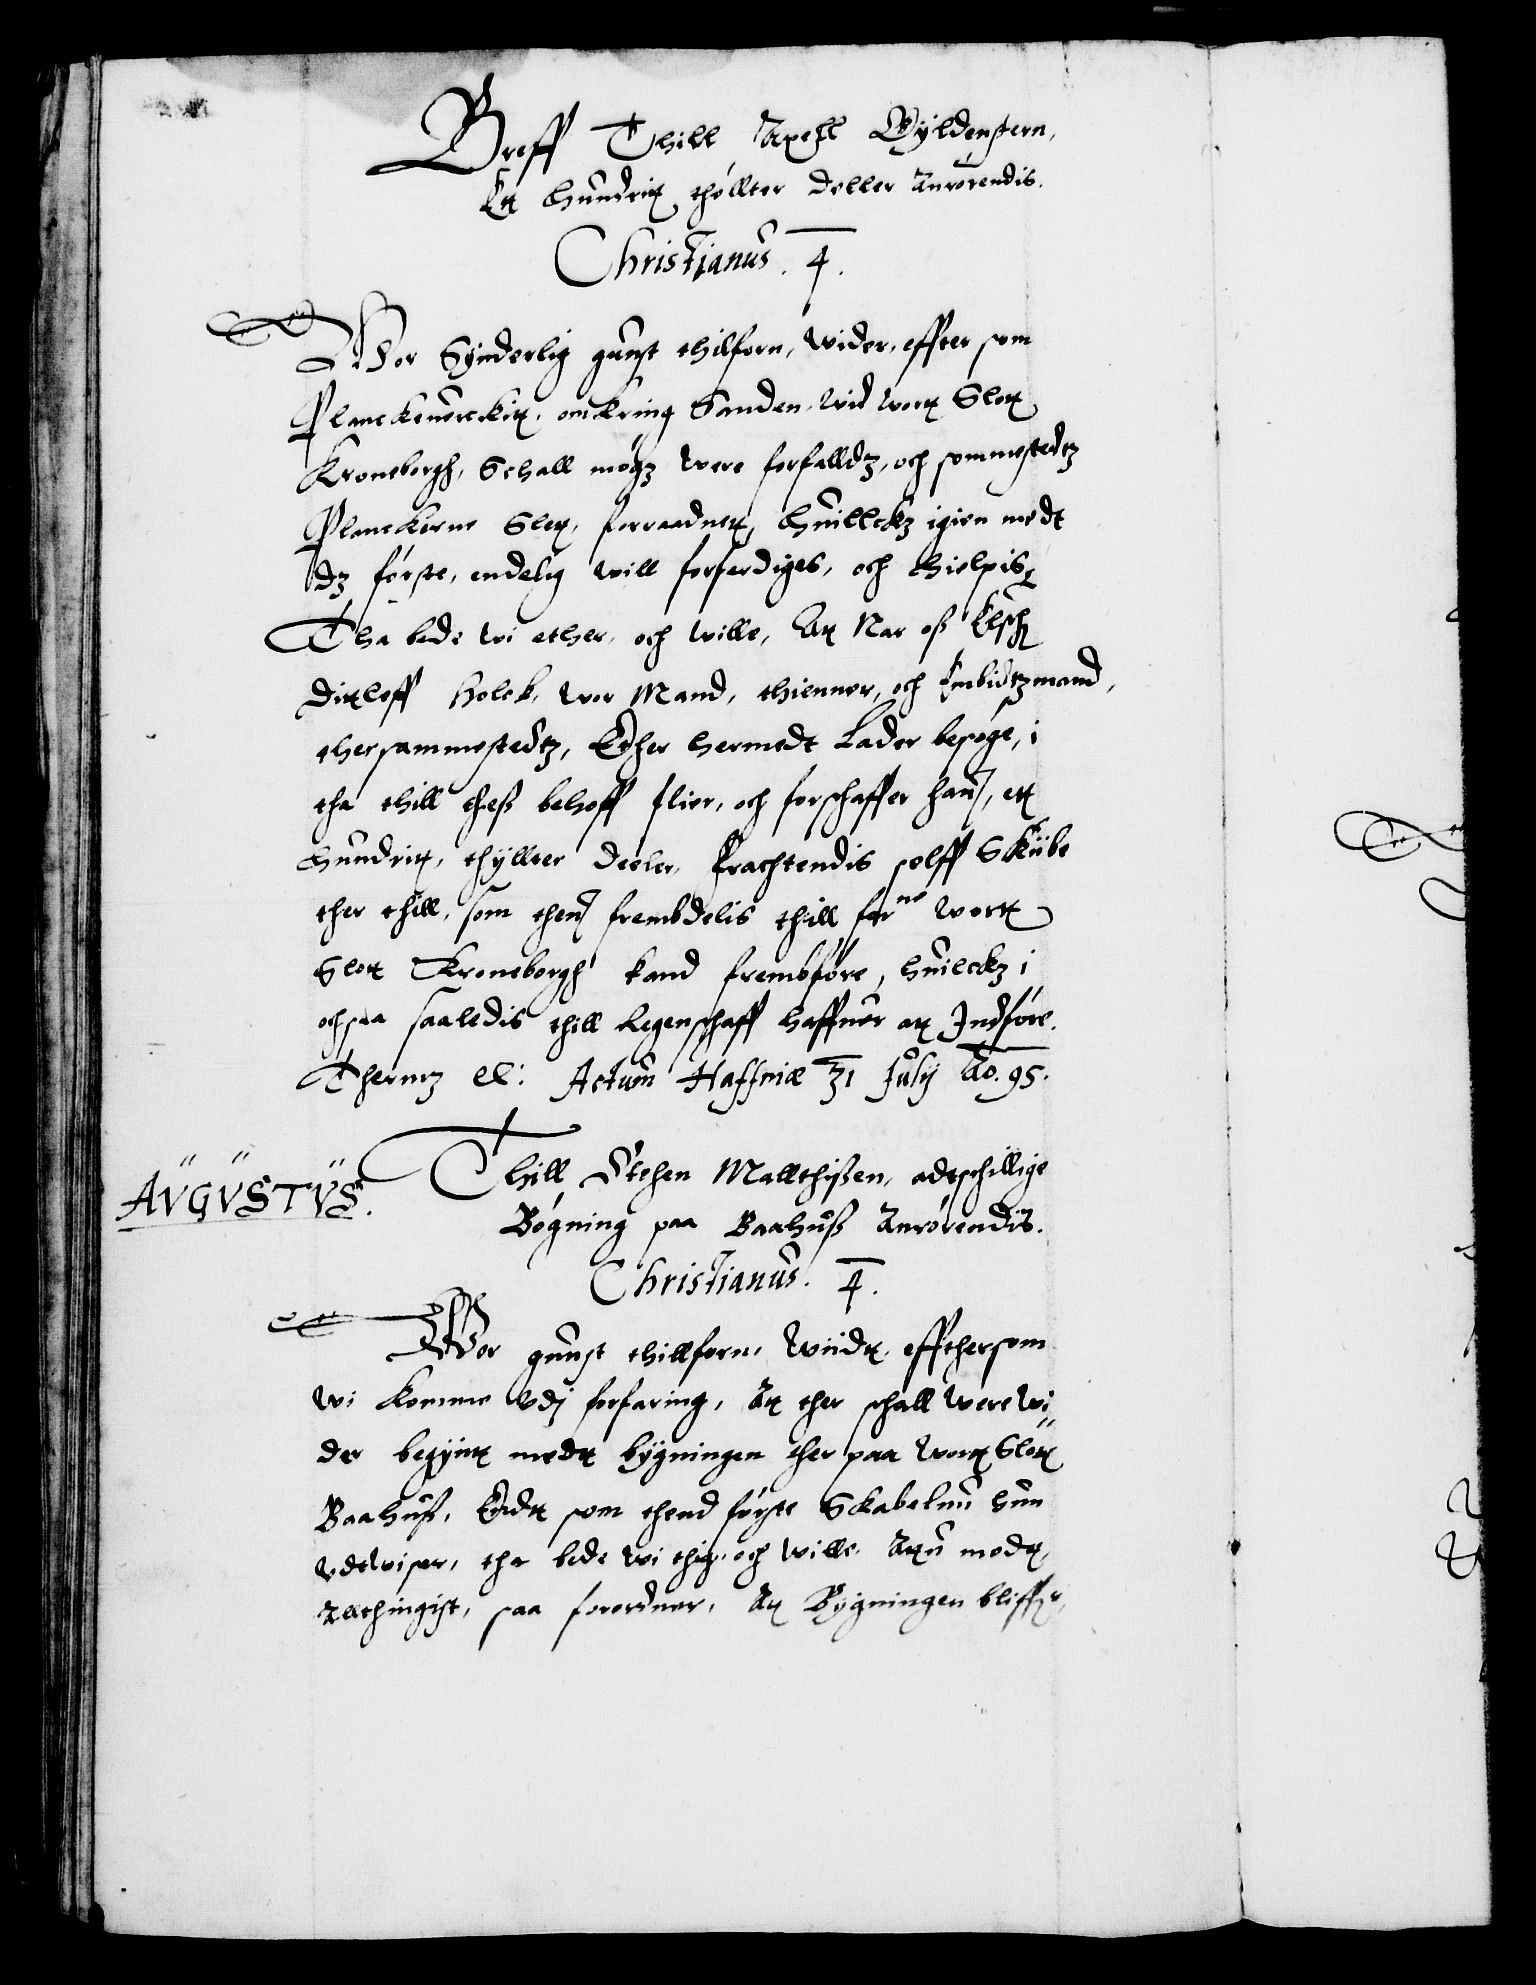 Breff Thill Axell Gyldenstern,
Et hundrit thøllter deller Anrørendis.
Christianus. 4.
Wor Synderlig gunst thilforn, Wider, effter som
Planckeuerckit, omkring Sanden, wid wort Slot
Kroneborgh, Schall møgz were forfalldz, och sommestedtz
Planckerne Slet, forraadnet, huillckz igien medt
dz første, endelig will forferdiges, och hielpis,
Tha bede wi ether, och wille, At Nar oss Elsch
Ditloff Holck, wor Mand, thienner, och Embidtzmand,
thersammestedtz, Ether hermedt Lader besøge, i
tha thill thess behoff flier, och forschaffer hanj, et
hundrit, thyllter deeler, fragtendis selff Skiibe
ther thill, som thenj frembdelis thill for ne wort
Slot Kroneborgh kand frembføre, huilckz i
ochsaa saaledis thill Regenschaff haffuer at Indføre.
Thermz etc: Actum Haffniæ 31 Julij Ao. 95.
AVGVSTVS.
Thill Stehen Mallthissen, adtschillige
Bøgning paa Baahuss Anrørendis.
Christianus. 4.
Wor gunst thillforn, Wiidt, effthersom
wi komme vdj forfaring, At ther schall were wi
der begynt medt bygningen ther paa wort Slot
Baahuss, Endt som thend første Skabelun hun
vdtwiser, tha bede wi thig, och wille, Attu medt
Allthingist, saa forordner, At Bygningen bliffr,